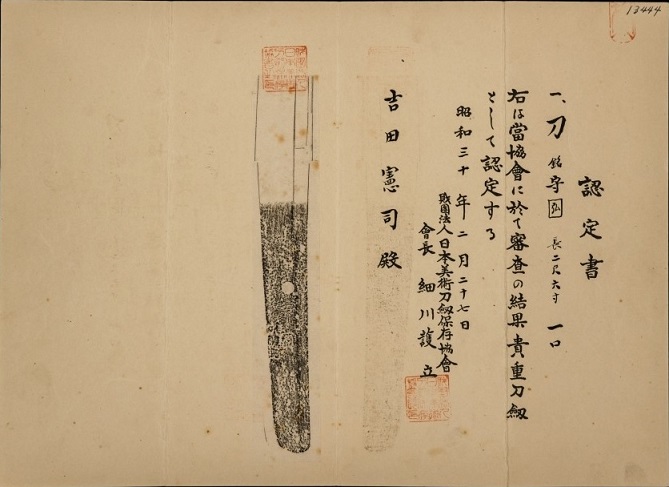 13444
認定書
一、刀 銘 守弘 長二尺六寸 一口
右は當協會に於て審査の結果貴重刀劔
として認定する
昭和三十年二月二十七日
財団法人日本美術刀劔保存協會
會長 細川護立
吉田憲司殿